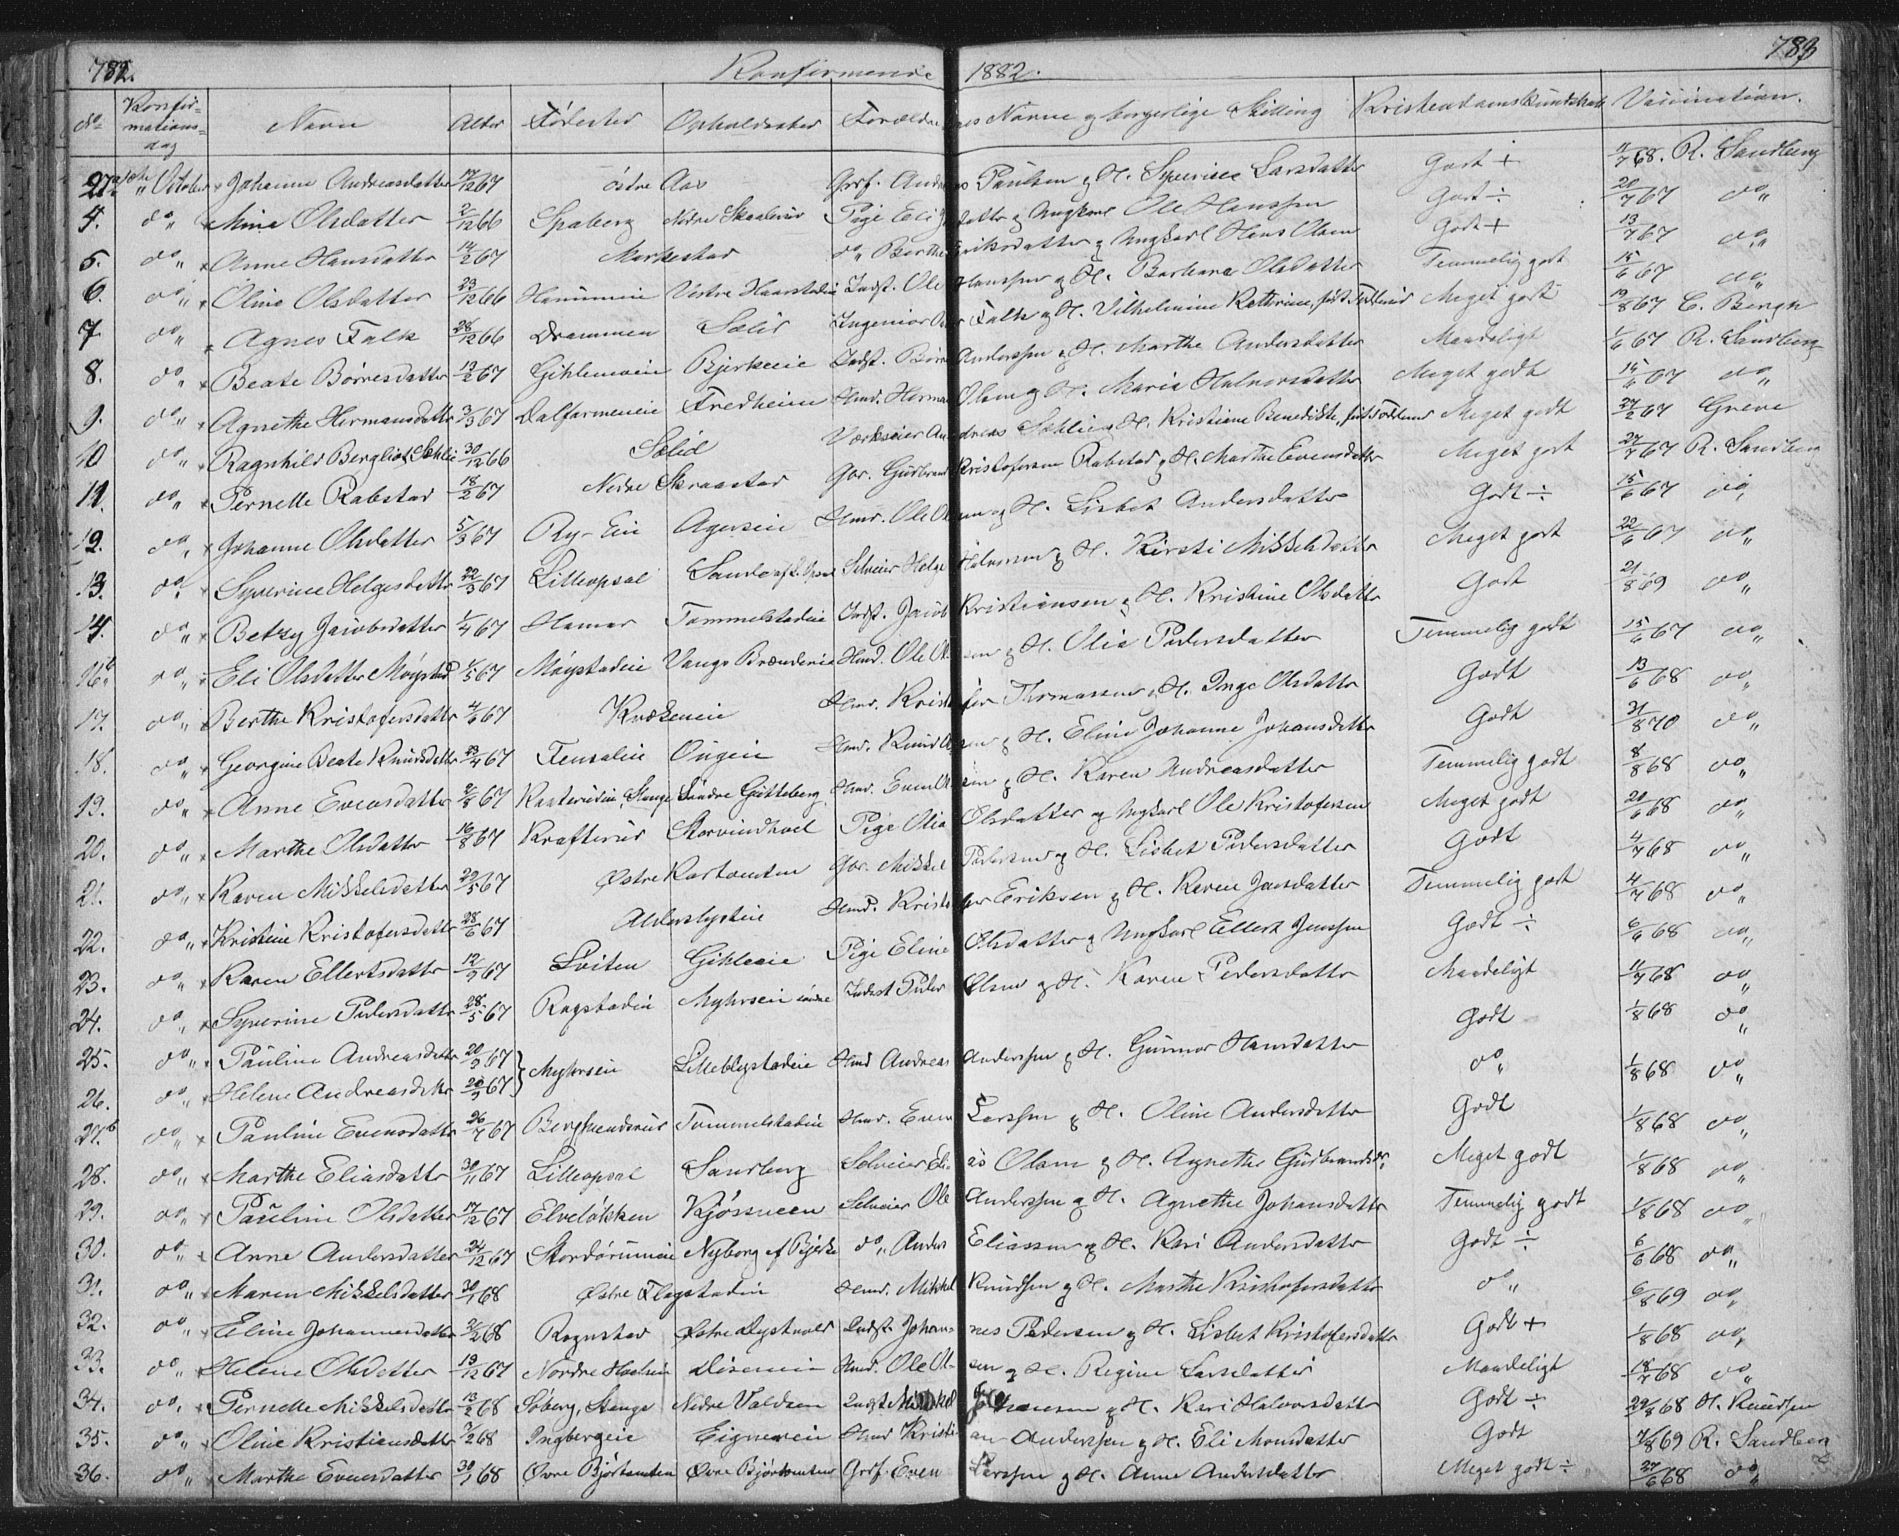 782. Konfirmerede 1882. 783
No Konfirmationsdag Navn Alder Fødested Opholdssted Forældrenes Navne og borgerlige Stilling Kristendomskundskab Vaccination.
October Johanne Andreasdatter 12/67 østre Aas Grdf. Andreas Paulsen og H. Syverine Larsdatter Godt ÷ 68. R. Sandberg
4. do „ Mina Olsdatter 2/12 66 Spaberg Nedre Pige Eli og Ungkarl Ole Hanssen Godt ÷ 20/7 67 do „
5. do „ Anne Hansdatter 14/2 67 do „ Berthe Eriksdatter og Ungkarl Hans Olsen Godt + 13/7 67 do „
6. do „ Oline Olsdatter 23/12 66 Vestre Indst. Ole Hanssen og H. Barbara Olsdatter Temmelig godt 15/6 67 do „
7 do „ Agnes Falk 28/12 66 Drammen Sælid Ingeniør Falk og H. Vilhelmine Kathrine, født Meget godt 19/8 67 C. Bergh
8. do „ Beate Børresdatter 13/2 67 Gihleneie Bjerkeeie Indst. Børre Anderssen og H. Marthe Andersdatter Maadeligt 1/6 67 R. Sandberg
9. do „ Agnethe Hermansdatter 3/3 67 Dalfarmeneie Fredheim Hmd. Herman Olsen og H. Maria Halvorsdatter Meget godt 15/6 67 do „
10 do „ Ragnhild Bergliot Sæhlie 30/12 66 Sælid Værkseier Andreas Sæhlie og H. Kristiane Benedikte, født Meget godt 27/2 67 Greve
11. do „ Pernelle Rabstad 18/2 67 Nedre Skraastad Gbr. Gudbrand Kristofersen Rabstad og H. Marthe Evensdatter Meget godt 27/7 67 R. Sandberg
12. do „ Johanne Olsdatter 5/3 67 Ry-Eie Agereie Hmd. Ole Olsen og H. Lisbet Andersdatter Godt ÷ 15/6 67 do „
13. do „ Syverine Helgesdatter 22/3 67 Lilleopsal Sande Selveier Helge Halvorsen og H. Kirsti Mikkelsdatter Meget godt 22/6 67 do „
14. do „ Betzy Jacobsdatter 1/4 67 Hamar Tommelstadeie Indst. Jacob Kristiansen og H. Kristine Olsdatter Godt 21/8 69 do „
16. do „ Eli Olsdatter Møystad 1/5 67 Møystadeie Vangs Brænderie Hmd. Ole Olsen og H. Olia Pedersdatter Temmelig godt 15/6 67 do „
17. do „ Berthe Kristofersdatter 4/6 67 Hmd. Kristofer Thomassen og H. Inge Olsdatter Godt 13/6 68 do „
18. do „ Georgine Beate Knudsdatter 67 Fensaleie Hmd. Knud Olsen og H. Eline Johanne Johansdatter Godt 21/8 70 do „
19. do „ Anne Evensdatter 2/8 67 Stange Søndre Gutteberg Hmd. Even Olsen og H. Karen Andreasdatter Temmelig godt 8/8 68 do „
20. do „ Marthe Olsdatter 16/8 67 Krafterud Storvindhvel Pige Olia Olsdatter og Ungkarl Ole Kristofersen Meget godt 20/6 68 do „
21. do „ Karen Mikkelsdatter 29/5 67 Østre Kartomten Gbr. Mikkel Pedersen og H. Lisbet Pedersdatter Godt 4/7 68 do „
22. do „ Kristine Kristofersdatter 28/6 67 Hmd. Kristofer Eriksen og H. Karen Jensdatter Temmelig godt 4/7 68 do „
23. do „ Karen Ellertsdatter 12/9 67 Løiten Gihleeie Pige Eline Olsdatter og Ungkarl Ellert Jenssen Godt ÷ 6/6 68 do „
24. do „ Syverine Pedersdatter 28/5 67 Rogstadeie Myhrseie søndre Indst Peder Olsen og H. Karen Pedersdatter Maadeligt 11/7 68 do „
25. do „ Pauline Andreasdatter 20/9 67 } Myhrseie Lilleblystadeie Hmd Andreas Anderssen og H. Gunnor Hansdatter Godt 1/8 68 do „
26. do „ Helene Andreasdatter 20/9 67 do „ 1/8 68 do „
27. do „ Pauline Evensdatter 26/7 67 Berghenderud Tommelstadeie Hmd. Even Larssen og H. Oline Andersdatter Godt 1/8 68 do „
28. do „ Marthe Eliasdatter 30/11 67 Lilleopsal Sandberg Selveier Elias Olsen og H. Agnethe Gudbrandsdr. Meget godt 1/8 68 do „
29. do „ Pauline Olsdatter 17/12 67 Elveløkken Kjøssveen Selveier Ole Anderssen og H. Agnethe Johansdatter Temmelig godt 1/8 68 do „
30. do „ Anne Andersdatter 24/12 67 Nyborg af Bjerke do „ Anders Eliassen og H. Kari Andersdatter Godt ÷ 6/6 68 do „
31. do „ Maren Mikkelsdatter 30/1 68 Østre Flagstadeie Hmd. Mikkel Knudsen og H. Marthe Kristofersdatter do „ 6/8 69 do „
32. do „ Eline Johannesdatter 2/2 68 Rognstad Østre Lystvold Indst. Johannes Pedersen og H. Lisbet Kristofersdatter Godt + 1/8 68 do „
33. do „ Helene Olsdatter 19/12 67 Nordre Diseneie Hmd. Ole Olsen og H. Regine Larsdatter Maadeligt 18/7 68 do „
34. do „ Pernelle Mikkelsdatter 13/2 68 Søberg, Stange Nedre Valdsen Indst Mikkel og H. Kari Halvorsdatter Godt ÷ 29/8 68 H. Knudsen
35. do „ Oline Kristiansdatter 7/2 68 Ingbergeie Hmd Kristian Anderssen og H. Eli Monsdatter Godt 7/8 69 R. Sandberg
36. do „ Marthe Evensdatter 30/1 68 Øvre Bjørtomten Øvre Bjørtomten Grdf. Even Larssen og H. Anne Andersdatter Meget godt ÷ 27/6 68 do „